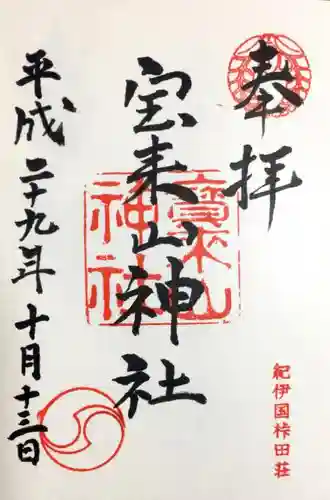 奉拝
紀伊国桛田荘
宝来山神社
寳来山
神社
平成二十九年十月十三日